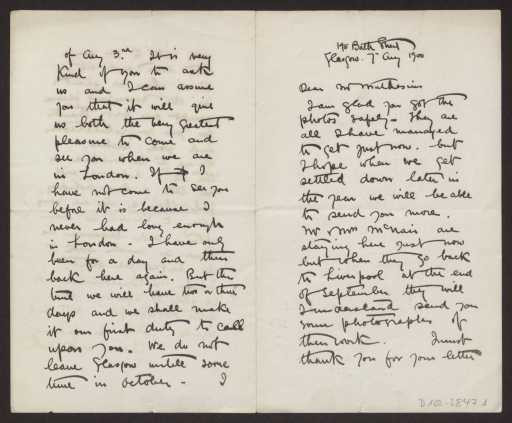 140 Bath Street
Glasgow. 7th Aug 1900
Dear Mr Muthesius
I am glad you got the
photos safely. They are
all I have managed
to get just now. but
I hope when we get
settled down later in
the year we will be able
to send you more.
Mr & Mrs McNair are
staying here just now
but when they go back
to Liverpool at the end
of September they will
I understand send you
some photographs of
their work. I must
thank you for your letter
of Aug 3rd. It is very
kind of you to ask
us and I can assure
you that it will give
us both the very greatest
pleasure to come and
see you when we are
in London. If I
have not come to see you
before it is because I
never had long enough
in London. I have only
been for a day and then
back here again. But this
time we will have two or three
days and we shall make
it our first duty to call
upon you. We do not
leave Glasgow untill some
time in October. I